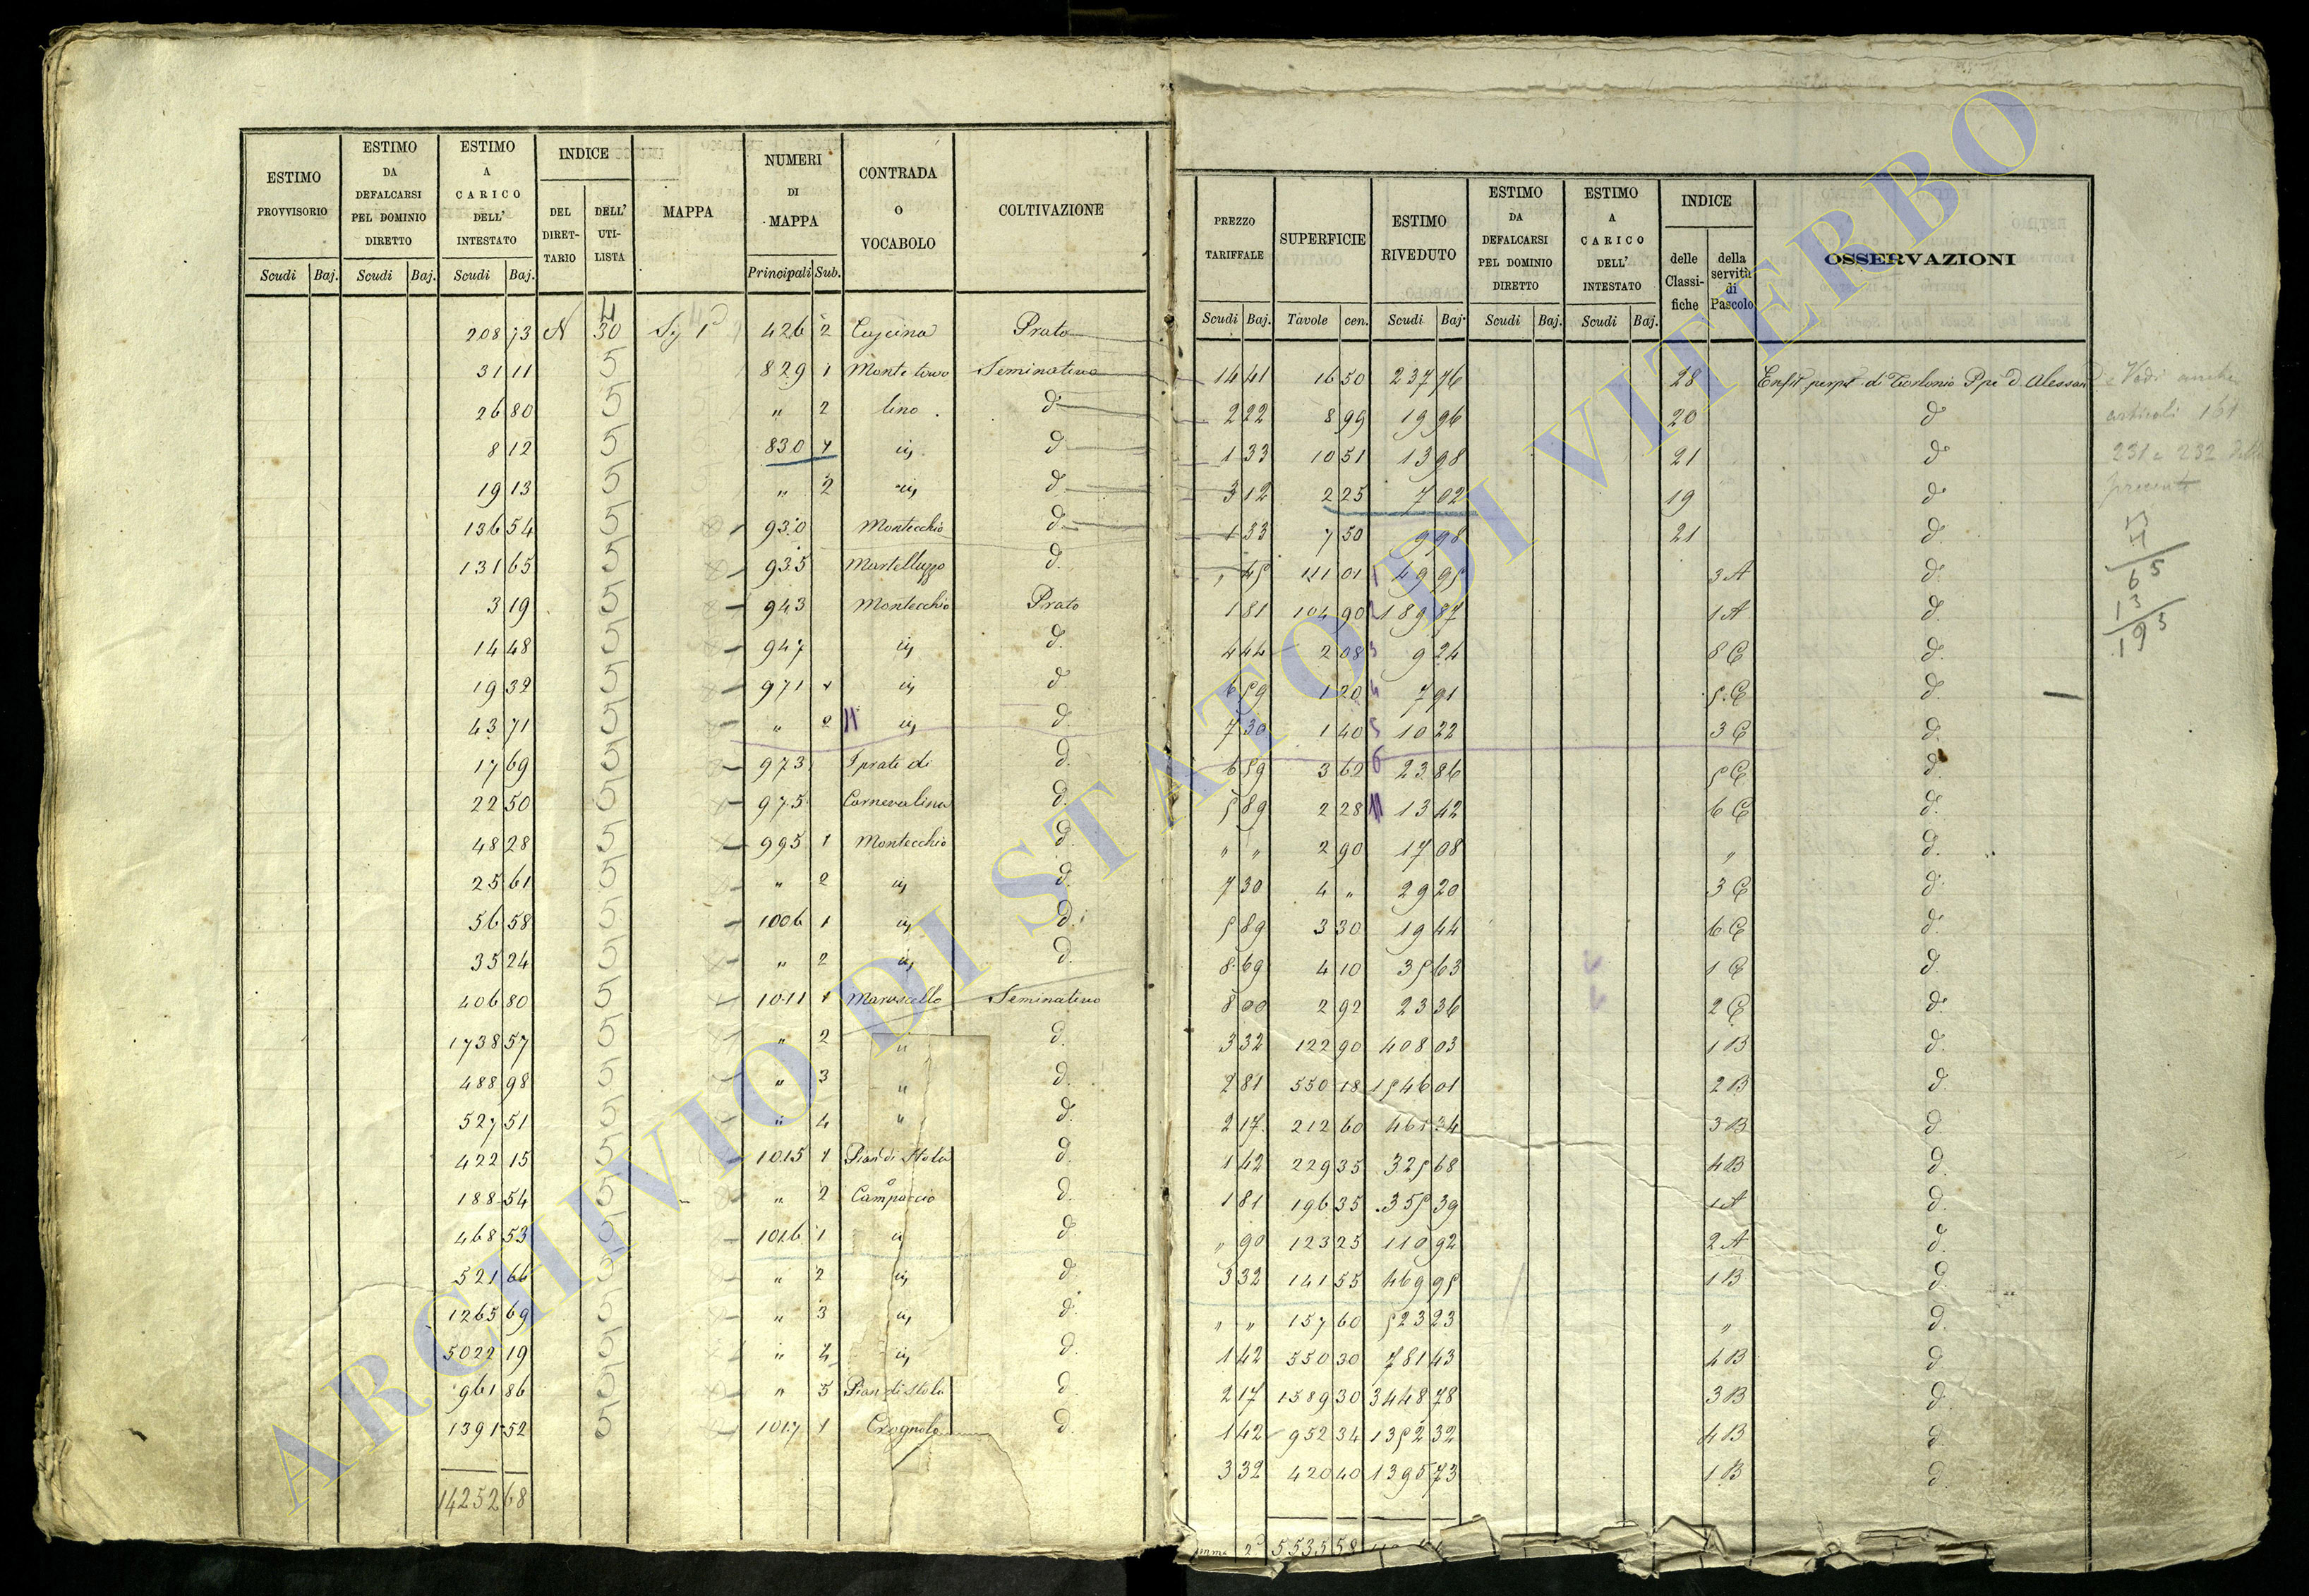 ESTIMO PROVVISORIO | ESTIMO DA DEFALCARSI PEL DOMINIO DIRETTO | ESTIMO A CARICO DELL' INTESTATO | INDICE | MAPPA | NUMERI DI MAPPA | CONTRADA O VOCABOLO | COLTIVAZIONE
DEL DIRETTARIO | DELL' UTILISTA
Scudi | Baj. | Scudi | Baj. | Scudi | Baj. | Principali | Sub.
208 73 N 30 426 2 Cascina Prato
31 11 5 829 1 Monte Seminativo
26 80 5 " 2 d
8 12 5 830 1 d
19 13 5 " 2 d
136 54 5 930 Montecchio d
131 65 5 935 Martelluzzo d.
3 19 5 943 Montecchio Prato
14 48 5 947 d.
19 32 5 971 1 d
43 71 5 " 2 d.
17 69 5 973 I prati di d.
22 50 5 975 Carnevalina d.
48 28 5 995 1 Montecchio d.
25 61 5 " 2 d.
56 58 5 1006 1 d.
35 24 5 " 2 d.
406 80 5 1011 1 Maruscello Seminativo
1738 57 5 " 2 " d.
488 98 5 " 3 " d.
527 51 5 " 4 " d.
422 15 5 1015 1 Pian di Stola d.
188 54 5 " 2 Campaccio d.
468 53 5 1016 1 d.
521 66 5 " 2 d.
1265 69 5 " 3 d.
5022 19 5 " 4 d.
961 86 5 " 5 Pian di Stola d.
1391 52 5 1017 1 d.
14252 68
PREZZO TARIFFALE | SUPERFICIE | ESTIMO RIVEDUTO | ESTIMO DA DEFALCARSI PEL DOMINIO DIRETTO | ESTIMO A CARICO DELL' INTESTATO | INDICE | OSSERVAZIONI
delle Classifiche | della servitù di Pascolo
Scudi | Baj. | Tavole | cen. | Scudi | Baj. | Scudi | Baj. | Scudi | Baj.
14 41 16 50 237 76 28 Enfit perpt di Torlonia Ppe D Alessan
2 22 8 99 19 96 20 d
1 33 10 51 13 98 21 d
3 12 2 25 7 02 19 d
1 33 7 50 9 98 21 d.
" 45 111 01 49 95 3 A d.
1 81 104 90 189 87 1 A d.
4 44 2 08 9 24 8 C d.
6 59 1 20 7 91 5 C d.
7 30 1 40 10 22 3 C d.
6 59 3 62 23 86 5 C d.
5 89 2 28 13 42 6 C d.
" " 2 90 17 08 " d.
7 30 4 " 29 20 3 C d.
5 89 3 30 19 44 6 C d.
8 69 4 10 35 63 1 C d.
8 00 2 92 23 36 2 C d.
3 32 122 90 408 03 1 B d.
2 81 550 18 1546 01 2 B d.
2 17 212 60 461 34 3 B d
1 42 229 35 325 68 4 B d.
1 81 196 35 355 39 1 A d.
" 90 123 25 110 92 2 A d.
3 32 141 55 469 95 1 B d.
" " 157 60 523 23 " d.
1 42 550 30 781 43 4 B d.
2 17 1589 30 3448 78 3 B d
1 42 952 34 1352 32 4 B d
3 32 420 40 1395 73 1 B d
5535 58
Vedi anche
articoli 161
231 e 232
presente
65
13
193
ARCHIVIO DI STATO DI VITERBO